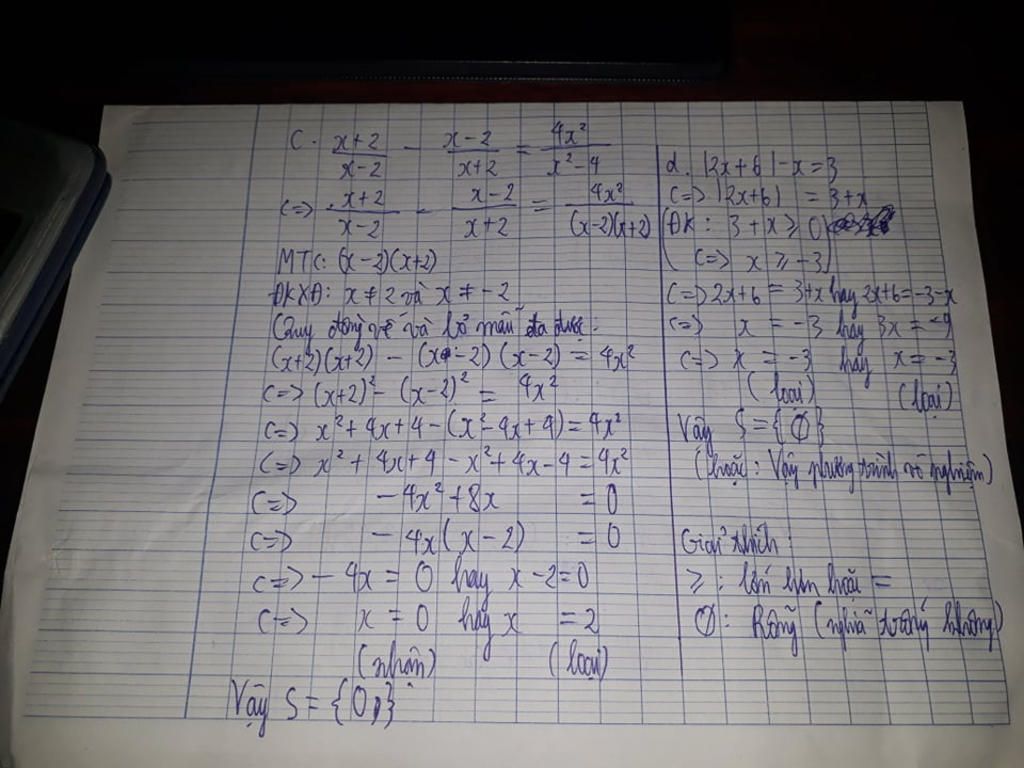 C. (x+2)/(x-2) - (x-2)/(x+2) = 4x²/(x²-4)
<=> (x+2)/(x-2) - (x-2)/(x+2) = 4x²/((x-2)(x+2))
MTC: (x-2)(x+2)
ĐKXĐ: x ≠ 2 và x ≠ -2
Quy đồng vế và bỏ mẫu ta được:
(x+2)(x+2) - (x-2)(x-2) = 4x²
<=> (x+2)² - (x-2)² = 4x²
<=> x²+4x+4-(x²-4x+4)=4x²
<=> x²+4x+4-x²+4x-4=4x²
<=> -4x²+8x = 0
<=> -4x(x-2) = 0
<=> -4x = 0 hay x-2=0
<=> x = 0 hay x = 2
(nhận) (loại)
Vậy S = {0,}
d. |2x+6|-x=3
<=> |2x+6| = 3+x
(ĐK: 3+x ≥ 0)
(<=> x ≥ -3)
<=> 2x+6 = 3+x hay 2x+6=-3-x
<=> x = -3 hay 3x = -9
<=> x = -3 hay x = -3
(loại) (loại)
Vậy S = {∅}
(hoặc: Vậy phương trình vô nghiệm)
Giải thích:
≥: lớn hơn hoặc =
∅: Rỗng (nghĩa trống không)